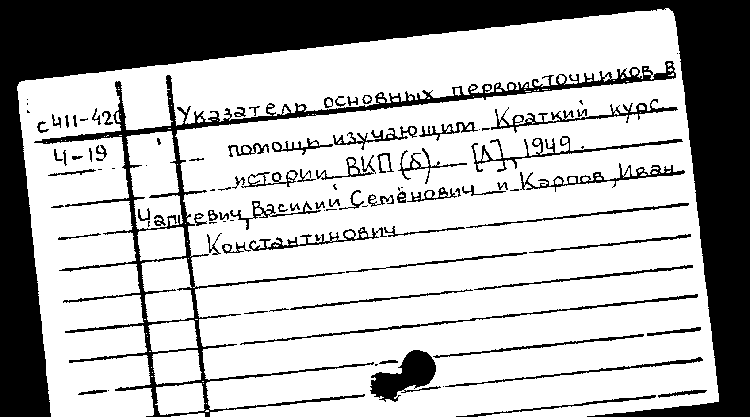 с411-420 Указатель основных первоисточников в
4-19 помощь изучающим Краткий курс
истории ВКП(б). [Л], 1949.
Чапкевич, Василий Семёнович и Карпов, Иван
Константинович